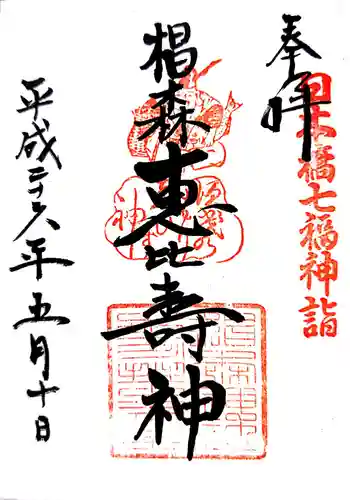 奉拝
日本橋七福神詣
椙森
恵比壽神
平成二十六年五月十日